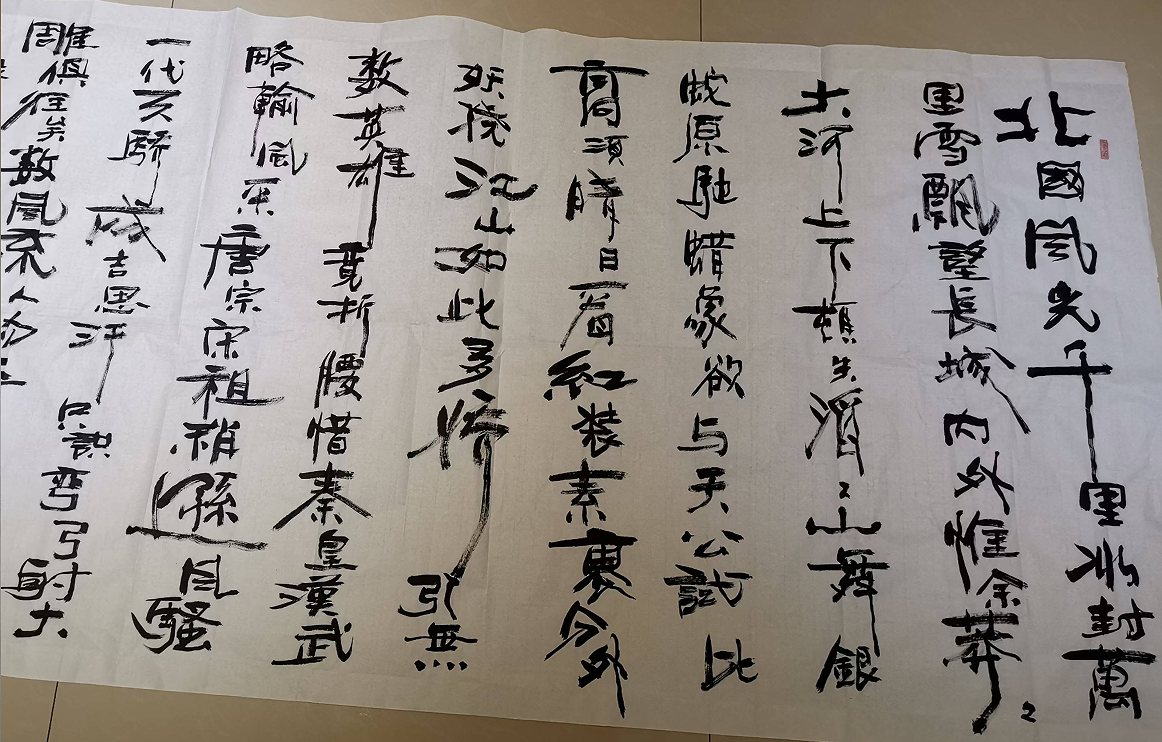 北國風光千里冰封萬
里雪飄望長城内外惟余莽〻
大河上下頓失滔〻山舞銀
蛇原馳蜡象欲与天公試比
高須晴日看紅装素裹分外
妖娆江山如此多娇引無
数英雄竟折腰惜秦皇漢武
略輸風采唐宗宋祖稍遜風騷
一代天驕成吉思汗只識彎弓射大
雕俱往矣数風流人物